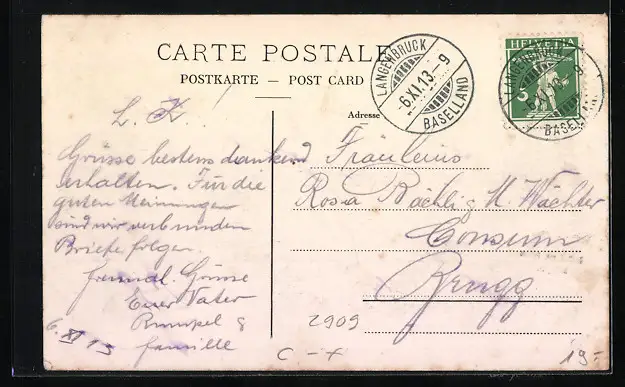 CARTE POSTALE
POSTKARTE — POST CARD
Adresse
LANGENBRUCK
-6.XI.13-9
BASELLAND
HELVETIA
5
LANGENBRUCK
-6.XI.13-9
BASELLAND
L. K.
Grüsse bestens dankend
erhalten. Für die
guten Meinungen
sind wir verbunden
Briefe folgen.
freundl. Grüsse
Euer Vater
&
Familie
6. XI 13
Fräuleins
Rosa Bächli & M. Wächter
Consum
Brugg
2909
C - x
19-